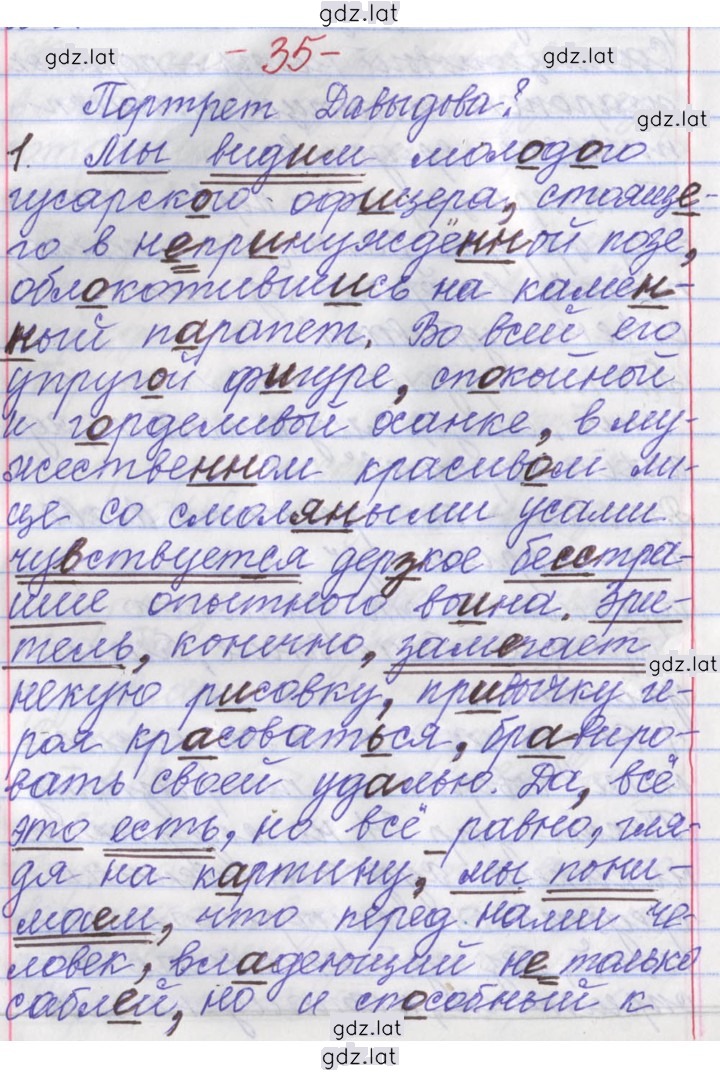 gdz.lat
- 35 -
gdz.lat gdz.lat
Портрет Давыдова?
gdz.lat
1. Мы видим молодого
гусарского офицера, стояще-
го в непринуждённой позе,
облокотившись на камен-
ный парапет. Во всей его
упругой фигуре, спокойной
и горделивой осанке, в му-
жественном красивом ли-
це со смоляными усами
чувствуется дерзкое бесстра-
шие опытного воина. Зри-
тель, конечно, замечает
gdz.lat
некую рисовку, привычку ге-
роя красоваться, бравиро-
вать своей удалью. Да, всё
это есть, но всё равно, гля-
дя на картину, мы пони-
маем, что перед нами че-
ловек, владеющий не только
саблей, но и способный к
gdz.lat
gdz.lat